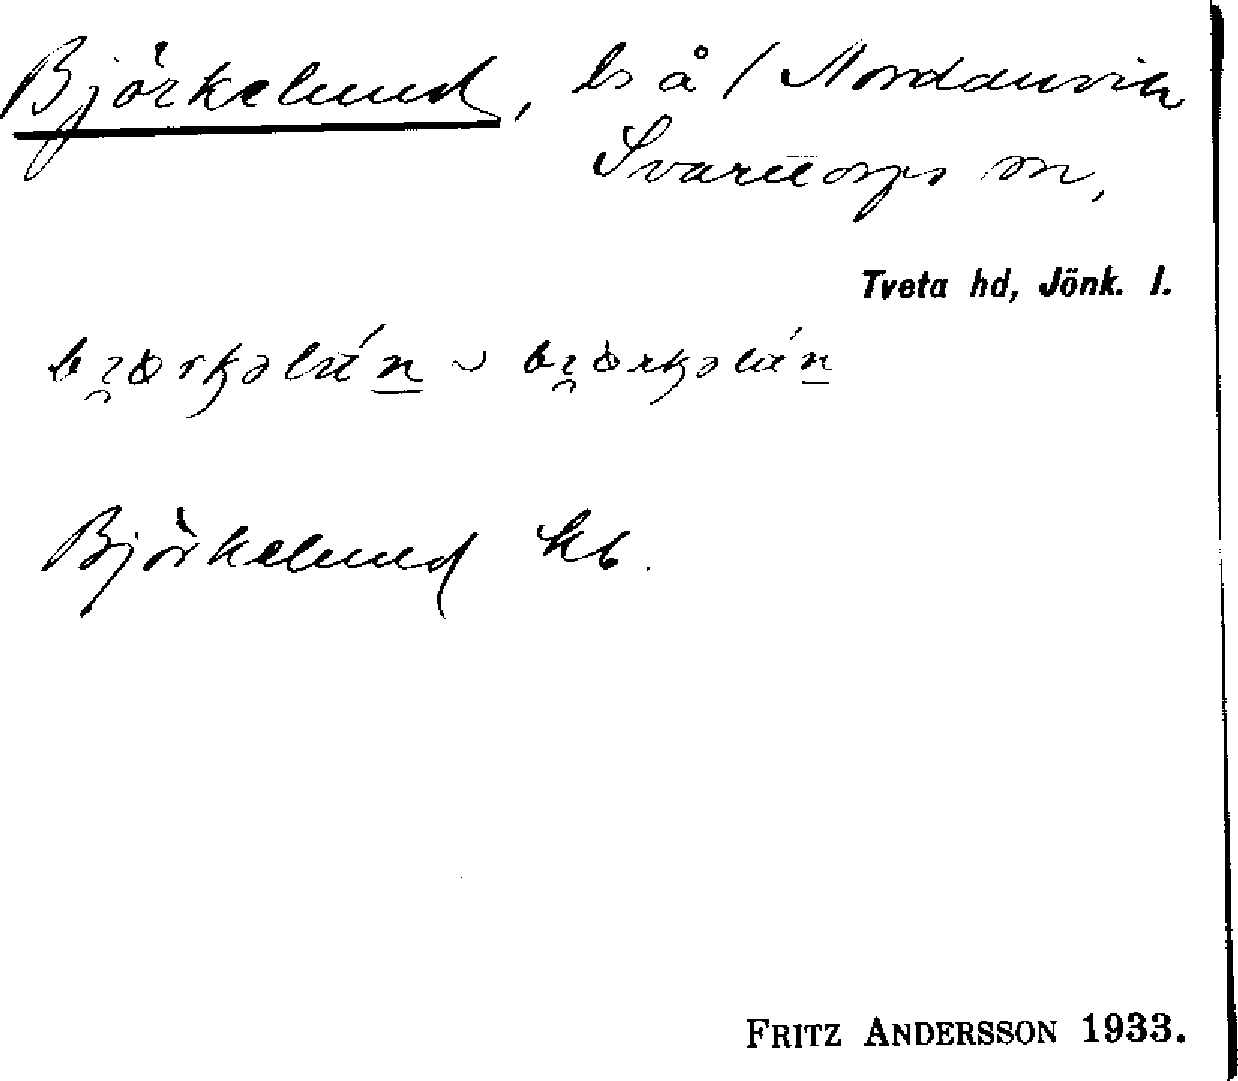 Björkelund, ls å / Nordanvik
Svarttorps sn,
Tveta hd, Jönk. l.
Björkelund kb.
FRITZ ANDERSSON 1933.